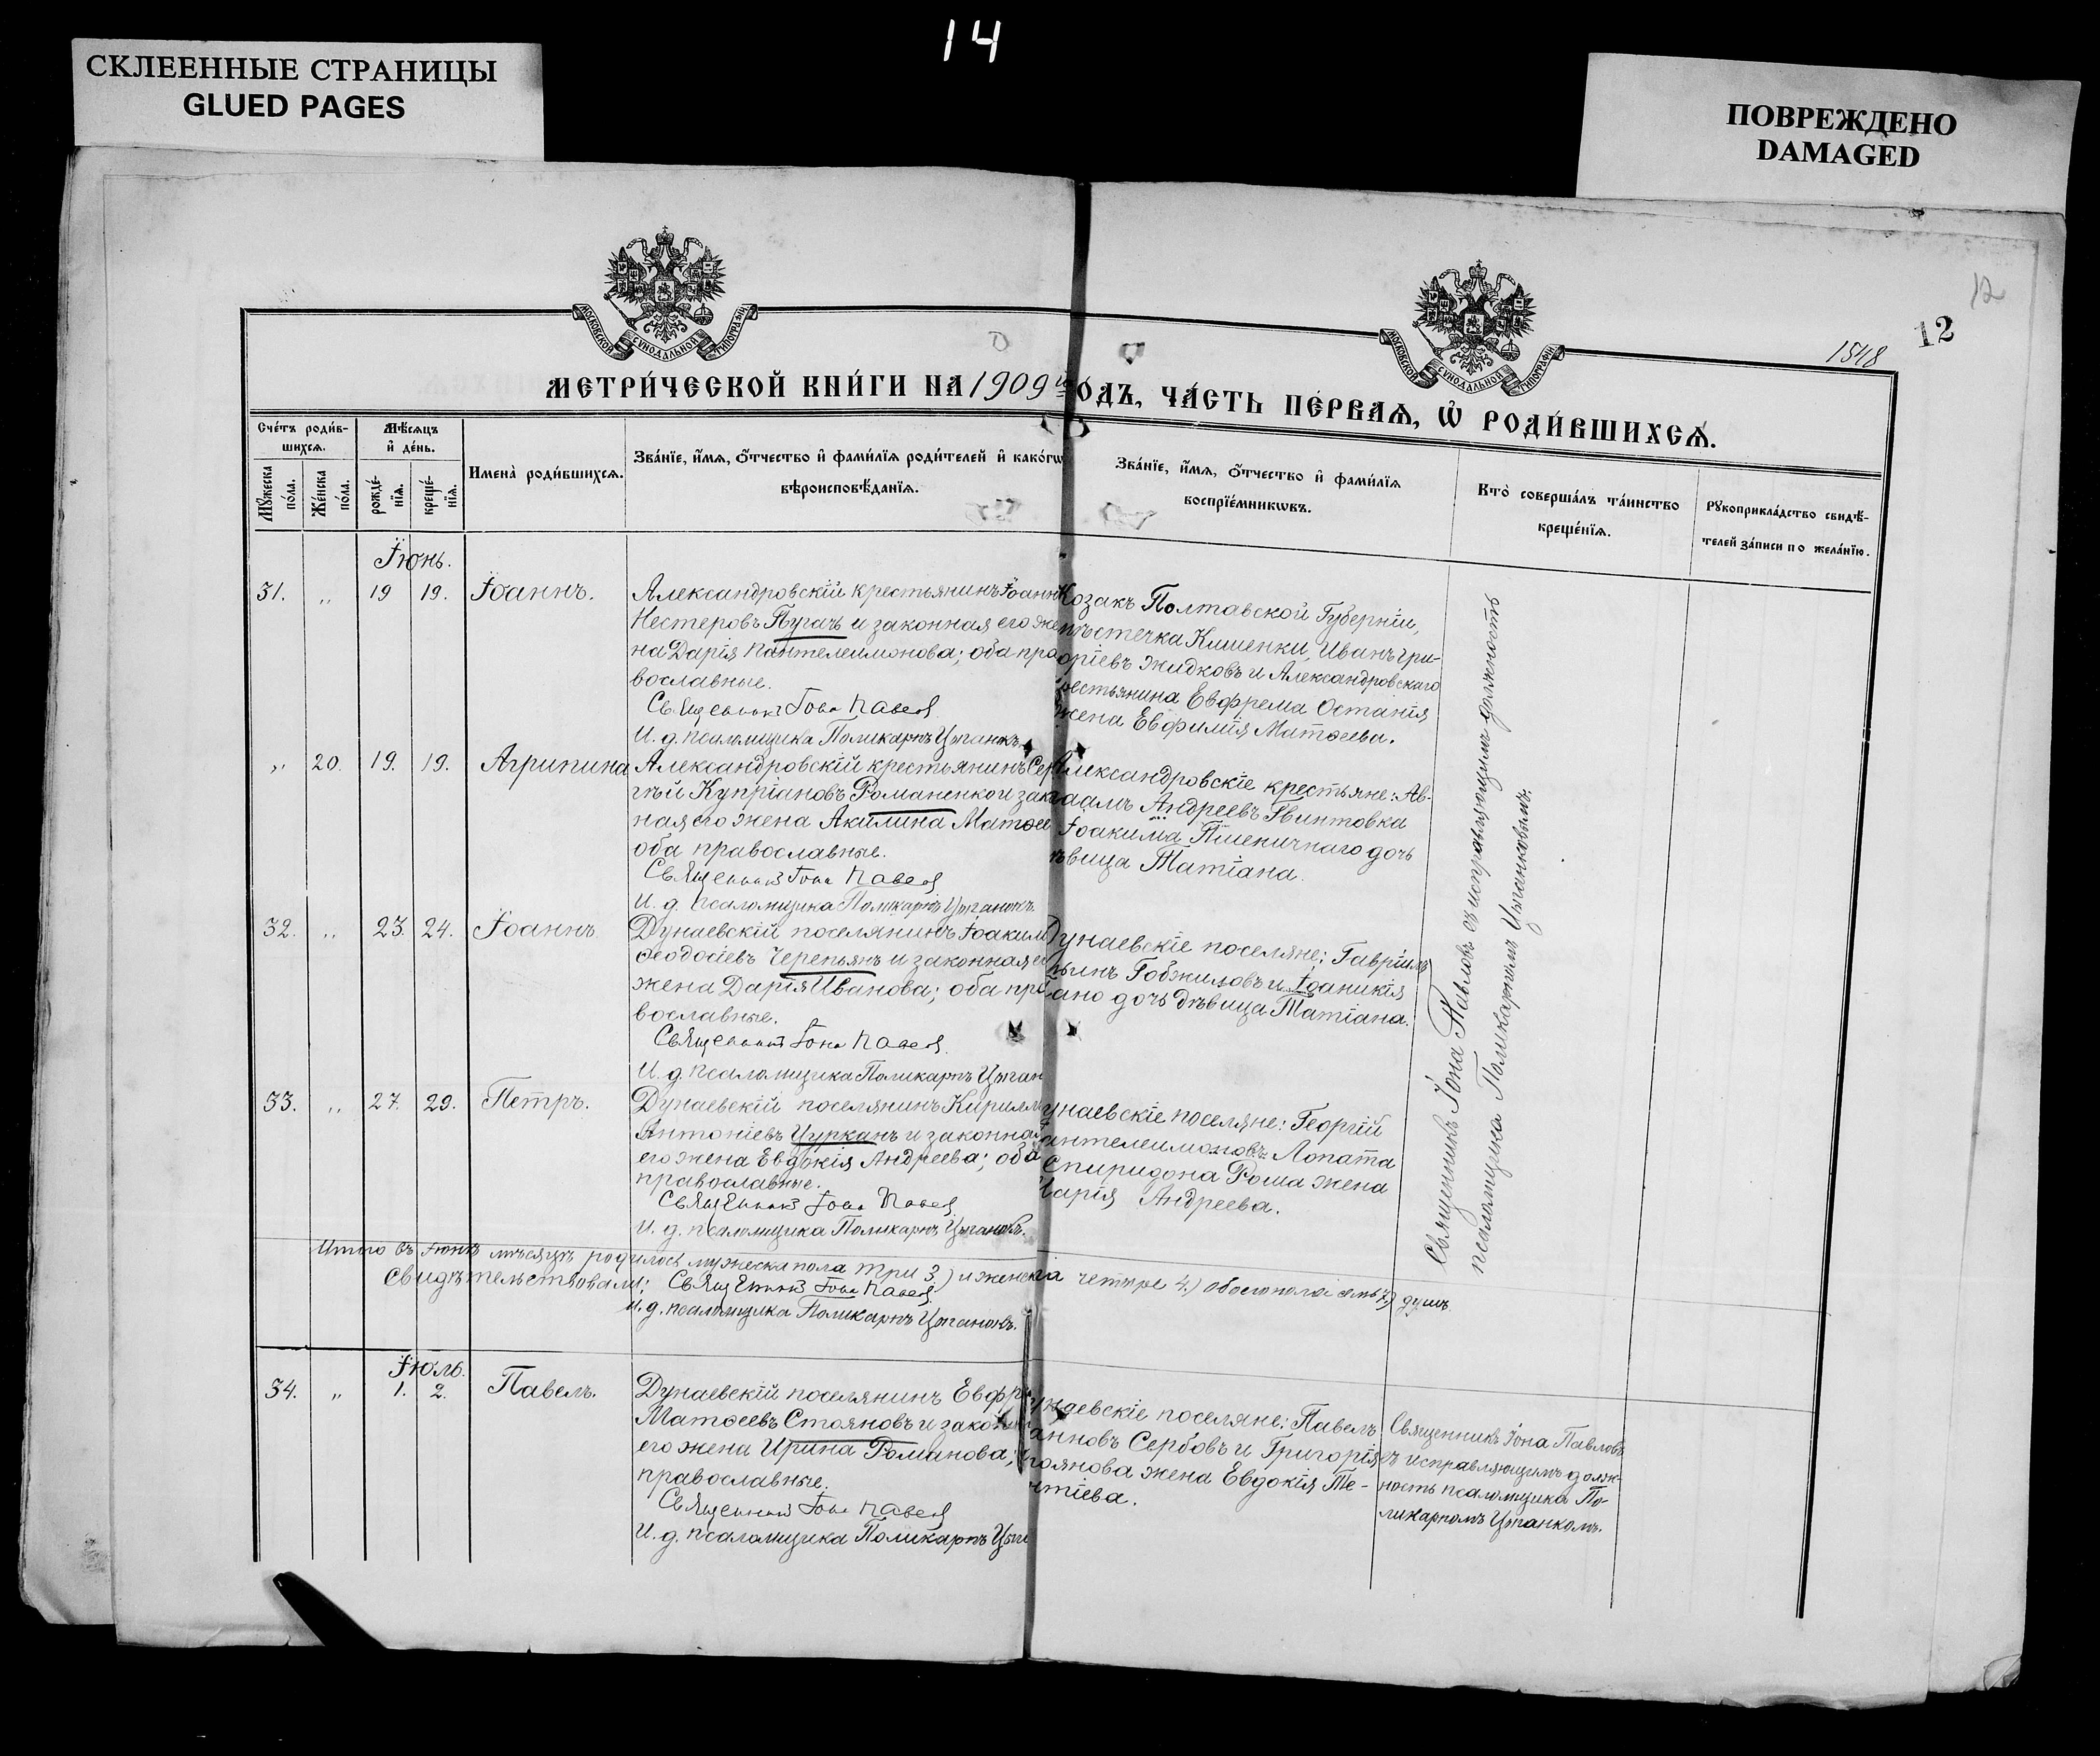 14
СКЛЕЕННЫЕ СТРАНИЦЫ
GLUED PAGES
ПОВРЕЖДЕНО
DAMAGED
12
12
1548
МОСКОВСКОЙ СѴНОДАЛЬНОЙ ТИПОГРАФІИ
МОСКОВСКОЙ СѴНОДАЛЬНОЙ ТИПОГРАФІИ
МЕТРИ́ЧЕСКОЙ КНИ́ГИ НА 1909й
ОДЪ, ЧА́СТЬ ПЕ́РВАѦ, Ѡ҆ РОДИ́ВШИХСѦ.
Сче́тъ роди́в-
шихсѧ.
Мѣ́сѧцъ
и҆ де́нь.
Мꙋ́жеска
по́ла.
Же́нска
по́ла.
рожде́-
нїѧ.
креще́-
нїѧ.
Имена̀ роди́вшихсѧ.
Зва́нїе, и҆́мѧ, ѻ҆́тчество и҆ фами́лїѧ роди́телей и҆ како́гѡ
вѣроисповѣ́данїѧ.
Зва́нїе, и҆́мѧ, ѻ҆́тчество и҆ фами́лїѧ
воспрїе́мникѡвъ.
Кто̀ соверша́лъ та́инство
креще́нїѧ.
Рꙋкоприкла́дство свидѣ́-
телей за́писи по жела́нїю.
Іюнь.
31. „ 19 19. Іоаннъ.
Александровскій крестьянинъ Іоаннъ
Нестеровъ Пугачъ и законная его же
на Дарія Пантелеимонова; оба пра
вославные.
Священникъ Іона Павловъ
И. д. псаломщика Поликарпъ Цыганокъ.
Козакъ Полтавской Губерніи,
мѣстечка Кишенки, Иванъ Гри-
оріевъ Жидковъ и Александровскаго
рестьянина Евфрема Останія
жена Евфимія Матѳеева.
„ 20. 19. 19. Агрипина
Александровскій крестьянинъ Сер
гѣй Купріановъ Романенко и зак
ная его жена Акилина Матѳее
оба православные.
Священникъ Іона Павловъ
И. д. псаломщика Поликарпъ Цыганокъ.
Александровскіе крестьяне: Ав-
раамъ Андреевъ Гвинтовка
Іоакима Пшеничнаго дочь
ѣвица Татіана.
32. „ 23. 24. Іоаннъ
Дунаевскій поселянинъ Іоаким
Ѳеодосіевъ Черепьянъ и законная е
жена Дарія Иванова; оба пра
вославные.
Священникъ Іона Павловъ.
И. д. псаломщика Поликарпъ Цыган
Дунаевскіе поселяне: Гавріилъ
Гобжиловъ и Іоаникія
ано дочь дѣвица Татіана.
33. „ 27. 29. Петръ.
Дунаевскій поселянинъ Кирилл
Антоніевъ Цурканъ и законна
его жена Евдокія Андреева; оба
православные.
Священникъ Іона Павловъ
И. д. псаломщика Поликарпъ Цыганокъ.
унаевскіе поселяне: Георгій
антелеимоновъ Лопата
Спиридона Роша жена
Марія Андреева.
Священникъ Іона Павловъ съ исправляющимъ должность
псаломщика Поликарпомъ Цыганковымъ.
Итого въ Іюнѣ мѣсяцѣ родилось мужеска пола три 3.) и женска четыре 4.) обоего пола семь 7.) душъ.
Свидѣтельствовали: Священникъ Іона Павловъ.
И. д. псаломщика Поликарпъ Цыганокъ.
Іюль.
34. „ 1. 2. Павелъ.
Дунаевскій поселянинъ Евфр
Матѳеевъ Стояновъ и законн
его жена Ирина Романова;
православные.
Священникъ Іона Павловъ
И. д. псаломщика Поликарпъ Цыга
унаевскіе поселяне: Павелъ
анновъ Сербовъ и Григорія
тоянова жена Евдокія Те-
нтіева.
Священникъ Іона Павловъ
съ исправляющимъ долж-
ность псаломщика По-
ликарпомъ Цыганкомъ.